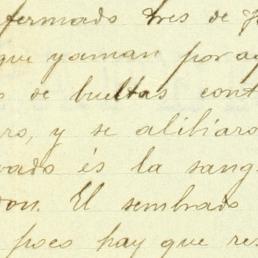 fermado tres de
que yaman por ag
de bueltas cont
ro, y se alibiaro
vado és la sang
don. El sembrado
poco hay que res